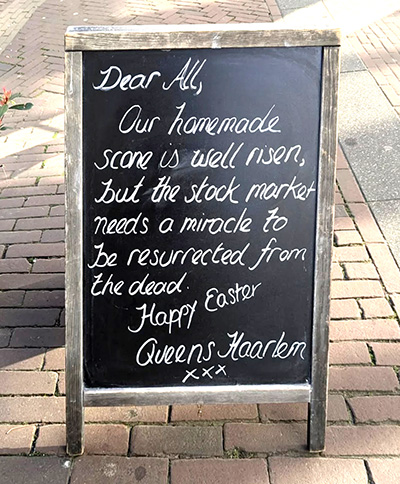 Dear All,
Our homemade
scone is well risen,
but the stock market
needs a miracle to
be resurrected from
the dead.
Happy Easter
Queens Haarlem
xxx